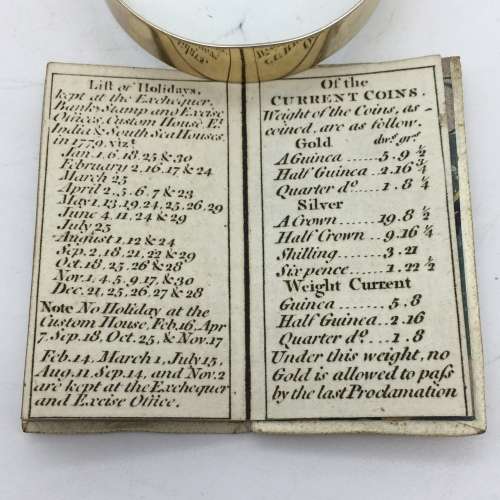 List of Holidays,
kept at the Exchequer,
Bank, Stamp and Excise
Offices, Custom House, Eᵗ
India & South Sea Houses,
in 1779. Vizᵗ.
Jan. 1, 6, 18, 25 & 30
February 2, 16, 17 & 24
March 25
April 2, 5, 6, 7 & 23
May 1, 13, 19, 24, 25, 26, 29
June 4, 11, 24 & 29
July 25
August 1, 12 & 24
Sep. 2, 18, 21, 22 & 29
Oct. 18, 25, 26 & 28
Nov. 1, 4, 5, 9, 17, & 30
Dec. 21, 25, 26, 27 & 28
Note No Holiday at the
Custom House, Feb. 16, Apr
7, Sep. 18, Oct. 25, & Nov. 17
Feb. 14, March 1, July 15,
Aug. 11, Sep. 14, and Nov. 2
are kept at the Exchequer
and Excise Office.
Of the
CURRENT COINS.
Weight of the Coins, as
coined, are as follow.
Gold dwˢ. grˢ.
A Guinea ..... 5 . 9 ½
Half Guinea .. 2 . 16 ¾
Quarter dº. ... 1 . 8 ¼
Silver
A Crown ..... 19 . 8 ½
Half Crown .. 9 . 16 ¼
Shilling ..... 3 . 21
Six pence .... 1 . 22 ½
Weight Current
Guinea ..... 5 . 8
Half Guinea .. 2 . 16
Quarter dº. .. 1 . 8
Under this weight, no
Gold is allowed to paſs
by the last Proclamation